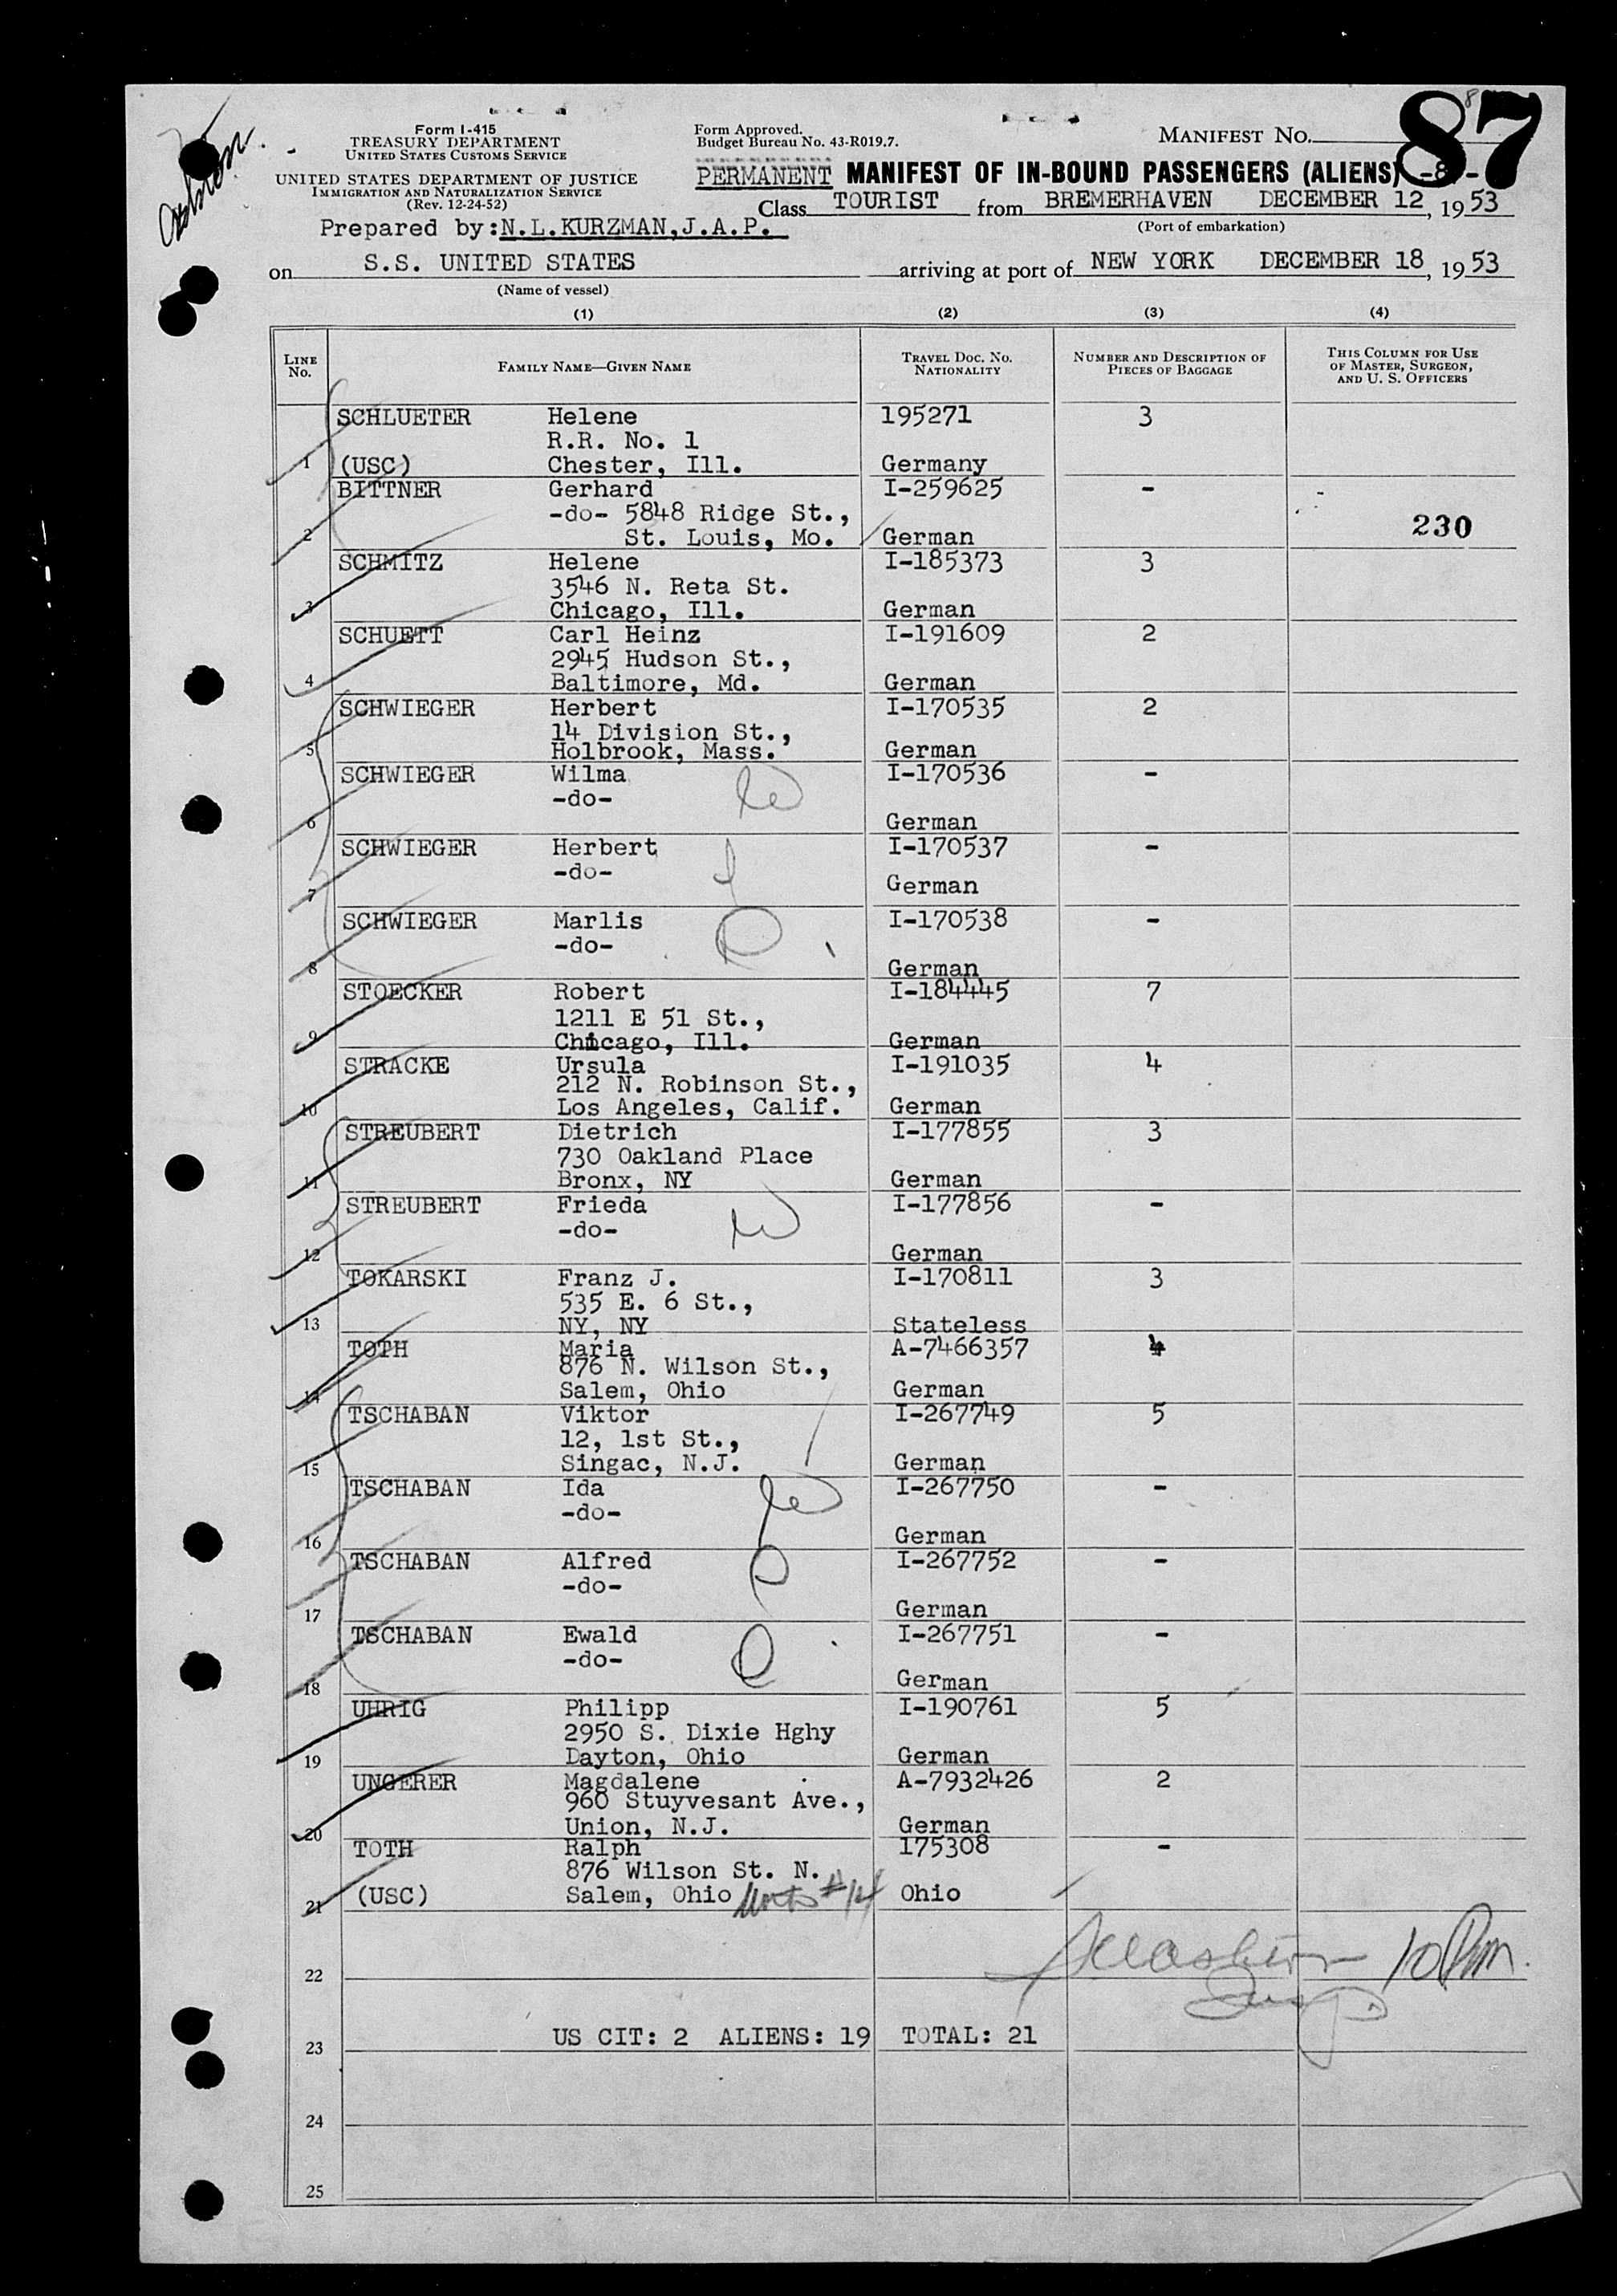 87
Form I-415
TREASURY DEPARTMENT
UNITED STATES CUSTOMS SERVICE
UNITED STATES DEPARTMENT OF JUSTICE
IMMIGRATION AND NATURALIZATION SERVICE
(Rev. 12-24-52)
Form Approved.
Budget Bureau No. 43-R019.7.
MANIFEST NO.
PERMANENT MANIFEST OF IN-BOUND PASSENGERS (ALIENS)
Class TOURIST from BREMERHAVEN DECEMBER 12, 1953
(Port of embarkation)
Prepared by:N.L.KURZMAN,J.A.P.
on S.S. UNITED STATES arriving at port of NEW YORK DECEMBER 18, 1953
(Name of vessel)
(1) (2) (3) (4)
LINE NO. FAMILY NAME—GIVEN NAME TRAVEL DOC. NO. NATIONALITY NUMBER AND DESCRIPTION OF PIECES OF BAGGAGE THIS COLUMN FOR USE OF MASTER, SURGEON, AND U. S. OFFICERS
SCHLUETER Helene 195271 3
R.R. No. 1
1 (USC) Chester, Ill. Germany
BITTNER Gerhard I-259625 -
-do- 5848 Ridge St., 230
2 St. Louis, Mo. German
SCHMITZ Helene I-185373 3
3546 N. Reta St.
3 Chicago, Ill. German
SCHUETT Carl Heinz I-191609 2
2945 Hudson St.,
4 Baltimore, Md. German
SCHWIEGER Herbert I-170535 2
14 Division St.,
5 Holbrook, Mass. German
SCHWIEGER Wilma I-170536 -
-do- W
6 German
SCHWIEGER Herbert I-170537 -
-do-
7 German
SCHWIEGER Marlis I-170538 -
-do-
8 German
STOECKER Robert I-184445 7
1211 E 51 St.,
9 Chicago, Ill. German
STRACKE Ursula I-191035 4
212 N. Robinson St.,
10 Los Angeles, Calif. German
STREUBERT Dietrich I-177855 3
730 Oakland Place
11 Bronx, NY German
STREUBERT Frieda I-177856 -
-do- W
12 German
TOKARSKI Franz J. I-170811 3
535 E. 6 St.,
13 NY, NY Stateless
TOTH Maria A-7466357 4
876 N. Wilson St.,
14 Salem, Ohio German
TSCHABAN Viktor I-267749 5
12, 1st St.,
15 Singac, N.J. German
TSCHABAN Ida I-267750 -
-do- W
16 German
TSCHABAN Alfred I-267752 -
-do-
17 German
TSCHABAN Ewald I-267751 -
-do-
18 German
UHRIG Philipp I-190761 5
2950 S. Dixie Hghy
19 Dayton, Ohio German
UNGERER Magdalene A-7932426 2
960 Stuyvesant Ave.,
20 Union, N.J. German
TOTH Ralph 175308 -
876 Wilson St. N.
21 (USC) Salem, Ohio #14 Ohio
10 Pm.
22
23 US CIT: 2 ALIENS: 19 TOTAL: 21
24
25